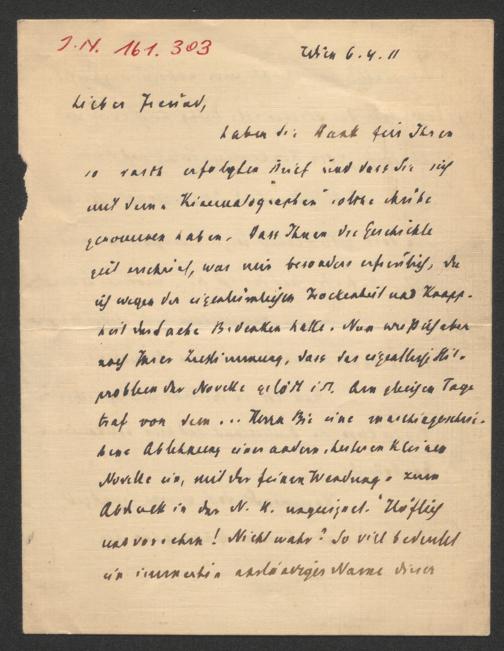 J.N. 161.303
Wien 6.4.11
Lieber Freund,
haben Sie Dank für Ihren
so rasch erfolgten Brief und dass Sie sich
mit dem „Kinematographen" solche Mühe
genommen haben. Dass Ihnen die Geschichte
gut erschien, war mir besonders erfreulich, da
ich wegen der eigentümlichen Trockenheit und Knapp-
heit der Sache Bedenken hatte. Nun weiss ich aber
nach Ihrer Zustimmung, dass das eigentliche Stil-
problem der Novelle gelöst ist. Am gleichen Tage
traf von dem ... Herrn Bie eine maschingeschrie-
bene Ablehnung einer andern, heiteren kleinen
Novelle ein, mit der feinen Wendung „ zum
Abdruck in der N. R. ungeeignet." Höflich
und vornehm! Nicht wahr? So viel bedeutet
ein immerhin anständiger Name dieser